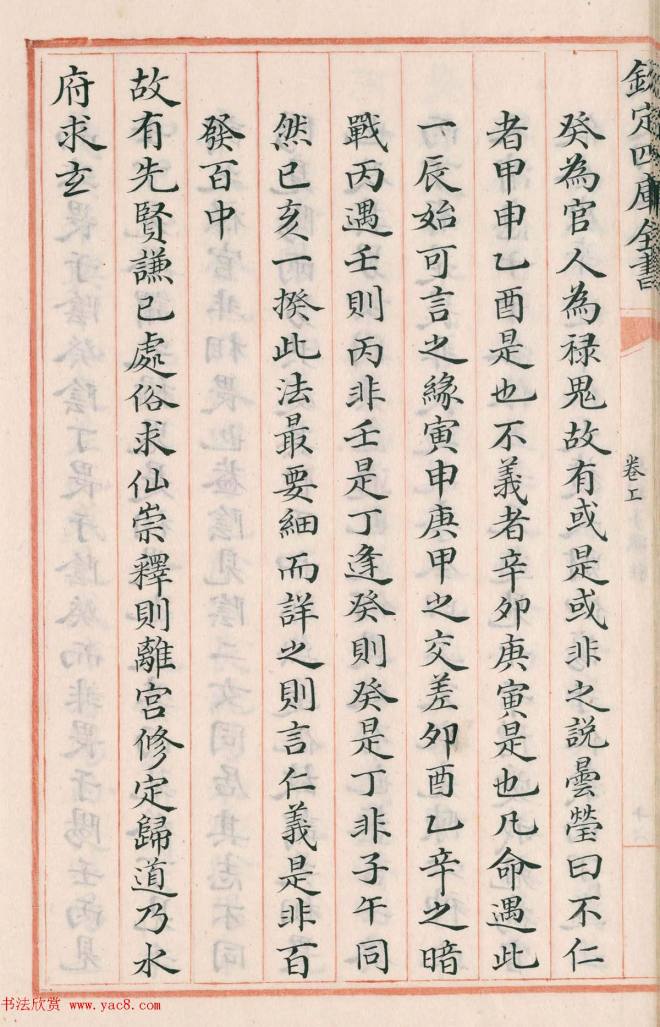 欽定四庫全書
卷上
癸為官人為禄鬼故有或是或非之説曇瑩曰不仁
者甲申乙酉是也不義者辛卯庚寅是也凡命遇此
一辰始可言之緣寅申庚甲之交差夘酉乙辛之暗
戰丙遇壬則丙非壬是丁逢癸則癸是丁非子午同
然巳亥一揆此法最要細而詳之則言仁義是非百
發百中
故有先賢謙己處俗求仙崇釋則離宫修定歸道乃水
府求玄
书法欣赏 www.yac8.com